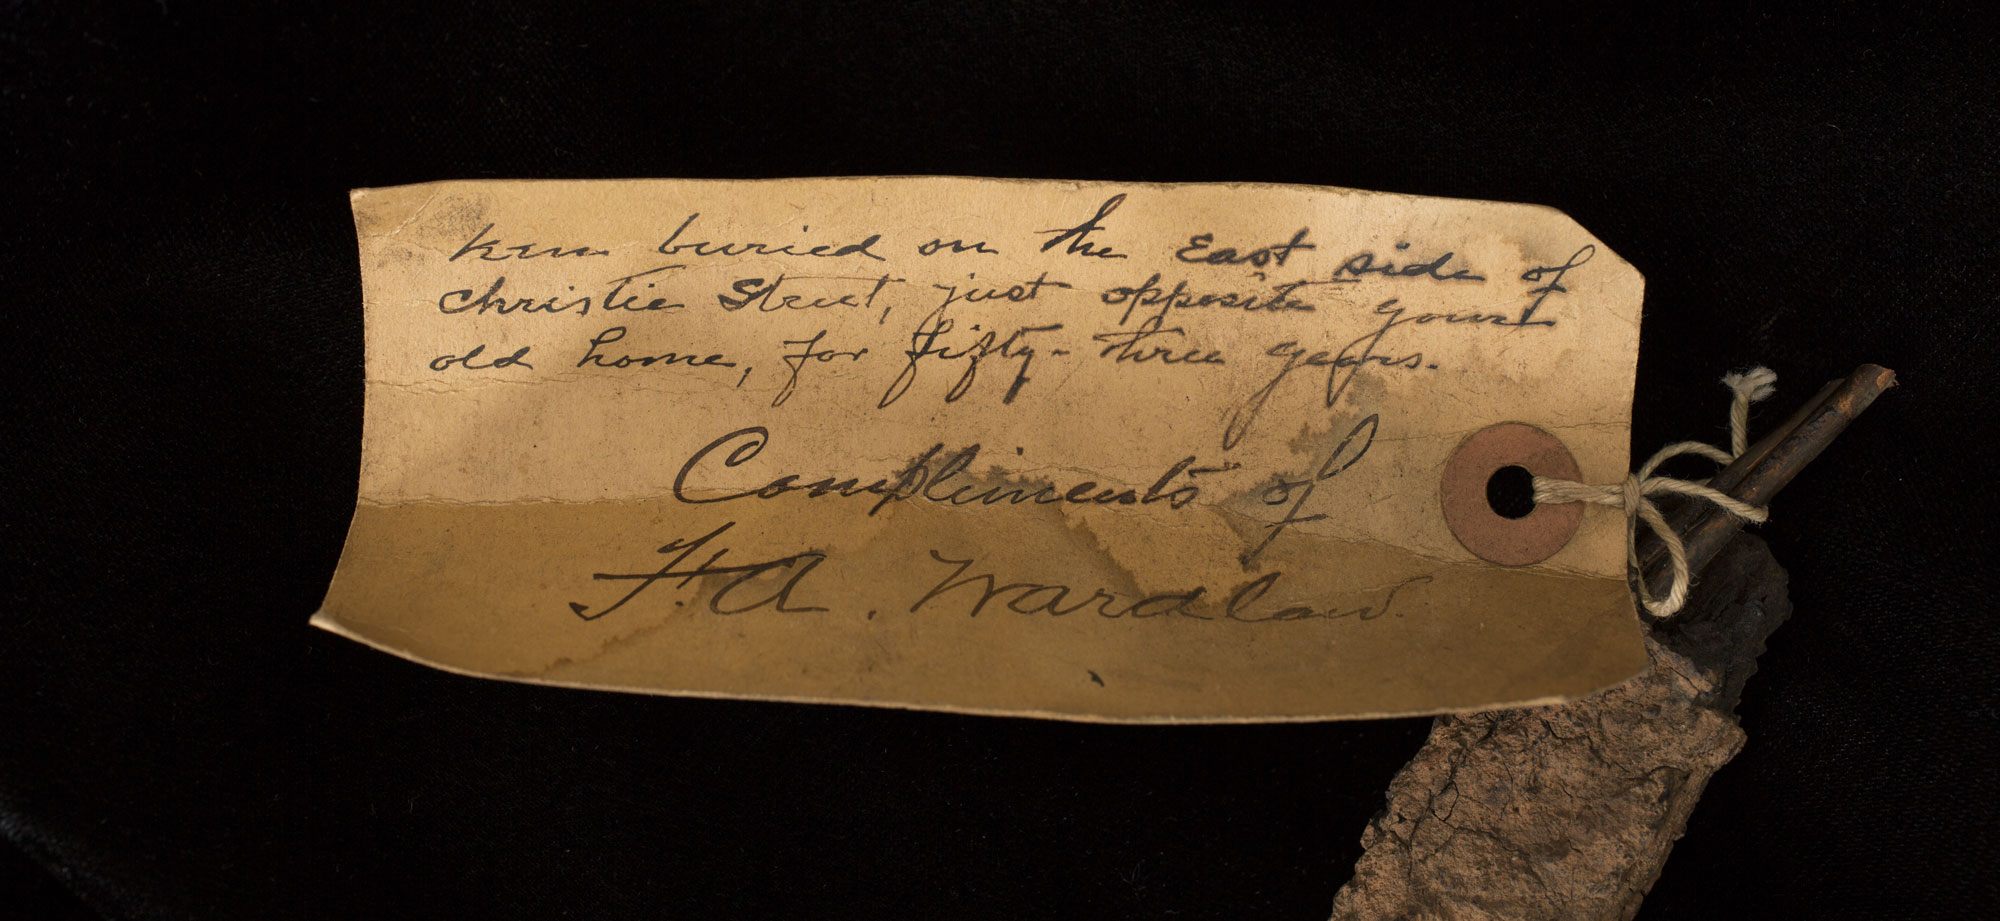 been buried on the East side of
Christie Street, just opposite your
old home, for fifty-three years.
Compliments of
F. A. Wardlaw.